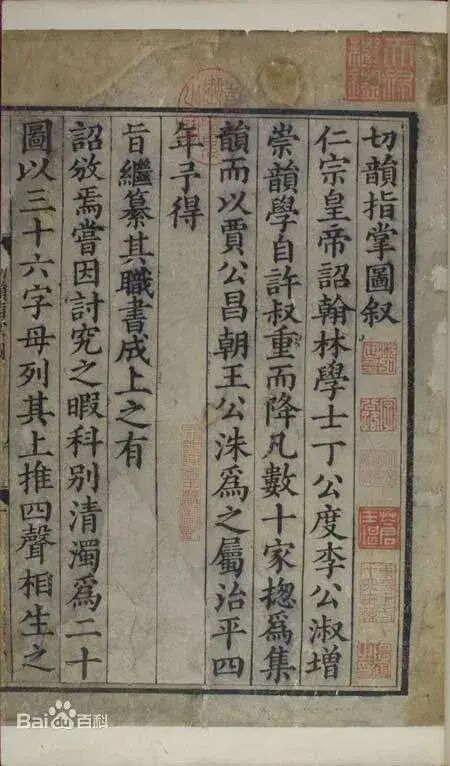 切韻指掌圖叙
仁宗皇帝詔翰林學士丁公度李公淑增
崇韻學自許叔重而降凡數十家揔為集
韻而以賈公昌朝王公洙為之屬治平四
年予得
旨繼纂其職書成上之有
詔攽焉嘗因討究之暇科别清濁為二十
圖以三十六字母列其上推四聲相生之
Bai百科